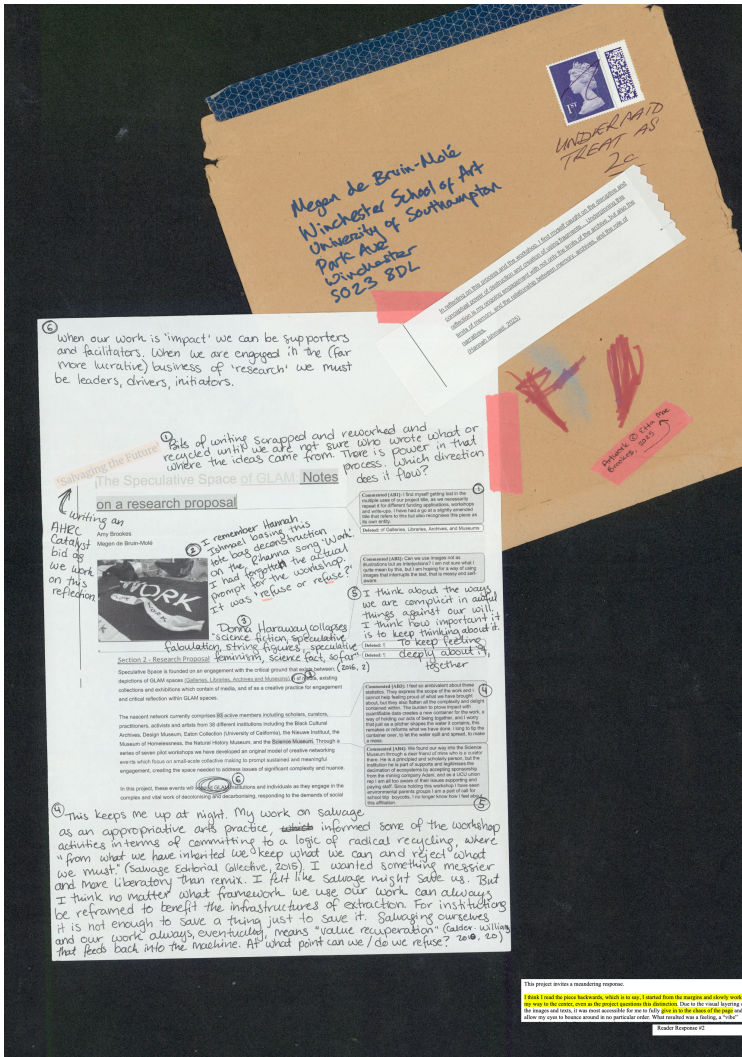 1ST
UNDERPAID
TREAT AS
2c
Megen de Bruin-Molé
Winchester School of Art
University of Southampton
Park Ave
Winchester
SO23 8DL
In reflecting on this process and the workshop, I find myself caught on the disruptive and
conceptual power of destruction and creation of using fragments... Underpinning this
reflection is my ongoing engagement with not only the limits of the archive, but also the
limits of memory, and the relationship between memory, archives, and the role of
narratives.
(Hannah Ishmael, 2025)
Artwork © Etta Mae
Brookes, 2025
6
When our work is 'impact' we can be supporters
and facilitators. When we are engaged in the (far
more lucrative) business of 'research' we must
be leaders, drivers, initiators.
1 Bits of writing scrapped and reworked and
recycled until we are not sure who wrote what or
where the ideas came from. There is power in that
process. Which direction
does it flow?
'Salvaging the Future'
The Speculative Space of GLAM: Notes
on a research proposal
Writing an
AHRC
Catalyst
bid as
we work
on this
reflection
Amy Brookes
Megen de Bruin-Molé
2 I remember Hannah
Ishmael basing this
tote bag deconstruction
on the Rihanna song 'Work'.
I had forgotten the actual
prompt for the workshop.
It was 'refuse or refuse?'
WORK
3
Donna Haraway collapses
"science fiction, speculative
fabulation, string figures, speculative
feminism, science fact, so far"
(2016, 2)
Commented [AB1]: I find myself getting lost in the
multiple uses of our project title, as we necessarily
repeat it for different funding applications, workshops
and write-ups. I have had a go at a slightly amended
title that refers to this but also recognises this piece as
its own entity.
1
Deleted: of Galleries, Libraries, Archives, and Museums
Commented [AB2]: Can we use images not as
illustrations but as interjections? I am not sure what I
quite mean by this, but I am hoping for a way of using
images that interrupts the text, that is messy and self-
aware.
5 I think about the ways
we are complicit in awful
things against our will.
I think how important it
is to keep thinking about it.
To keep feeling
deeply about it,
together
Deleted: ¶
Deleted: ¶
Section 2 - Research Proposal
Speculative Space is founded on an engagement with the critical ground that exists between,
depictions of GLAM spaces (Galleries, Libraries, Archives and Museums) in sf media, existing
collections and exhibitions which contain sf media, and sf as a creative practice for engagement
and critical reflection within GLAM spaces.
The nascent network currently comprises 93 active members including scholars, curators,
practitioners, activists and artists from 38 different institutions including the Black Cultural
Archives, Design Museum, Eaton Collection (University of California), the Nieuwe Instituut, the
Museum of Homelessness, the Natural History Museum, and the Science Museum. Through a
series of seven pilot workshops we have developed an original model of creative networking
events which focus on small-scale collective making to prompt sustained and meaningful
engagement, creating the space needed to address issues of significant complexity and nuance.
6
In this project, these events will support GLAM institutions and individuals as they engage in the
complex and vital work of decolonising and decarbonising, responding to the demands of social
Commented [AB3]: I feel so ambivalent about these
statistics. They express the scope of the work and I
cannot help feeling proud of what we have brought
about, but they also flatten all the complexity and delight
contained within. The burden to prove impact with
quantifiable data creates a new container for the work, a
way of holding our acts of being together, and I worry
that just as a pitcher shapes the water it contains, this
remakes or reforms what we have done. I long to tip the
container over, to let the water spill and spread, to make
a mess.
4
Commented [AB4]: We found our way into the Science
Museum through a dear friend of mine who is a curator
there. He is a principled and scholarly person, but the
institution he is part of supports and legitimises the
decimation of ecosystems by accepting sponsorship
from the mining company Adani, and as a UCU union
rep I am all too aware of their issues supporting and
paying staff. Since holding this workshop I have seen
environmental parents groups I am a part of call for
school trip boycotts. I no longer know how I feel about
this affiliation.
5
4 This keeps me up at night. My work on salvage
as an appropriative arts practice, which informed some of the workshop
activities in terms of committing to a logic of radical recycling, where
"from what we have inherited we keep what we can and reject what
we must." (Salvage Editorial Collective, 2015). I wanted something messier
and more liberatory than remix. I felt like Salvage might save us. But
I think no matter what framework we use our work can always
be reframed to benefit the infrastructures of extraction. For institutions
it is not enough to save a thing just to save it. Salvaging ourselves
and our work always, eventually, means "value recuperation" (Calder-Williams
that feeds back into the machine. At what point can we / do we refuse? 2016, 20)
This project invites a meandering response.
I think I read the piece backwards, which is to say, I started from the margins and slowly work
my way to the center, even as the project questions this distinction. Due to the visual layering
the images and texts, it was most accessible for me to fully give in to the chaos of the page and
allow my eyes to bounce around in no particular order. What resulted was a feeling, a "vibe"
Reader Response #2